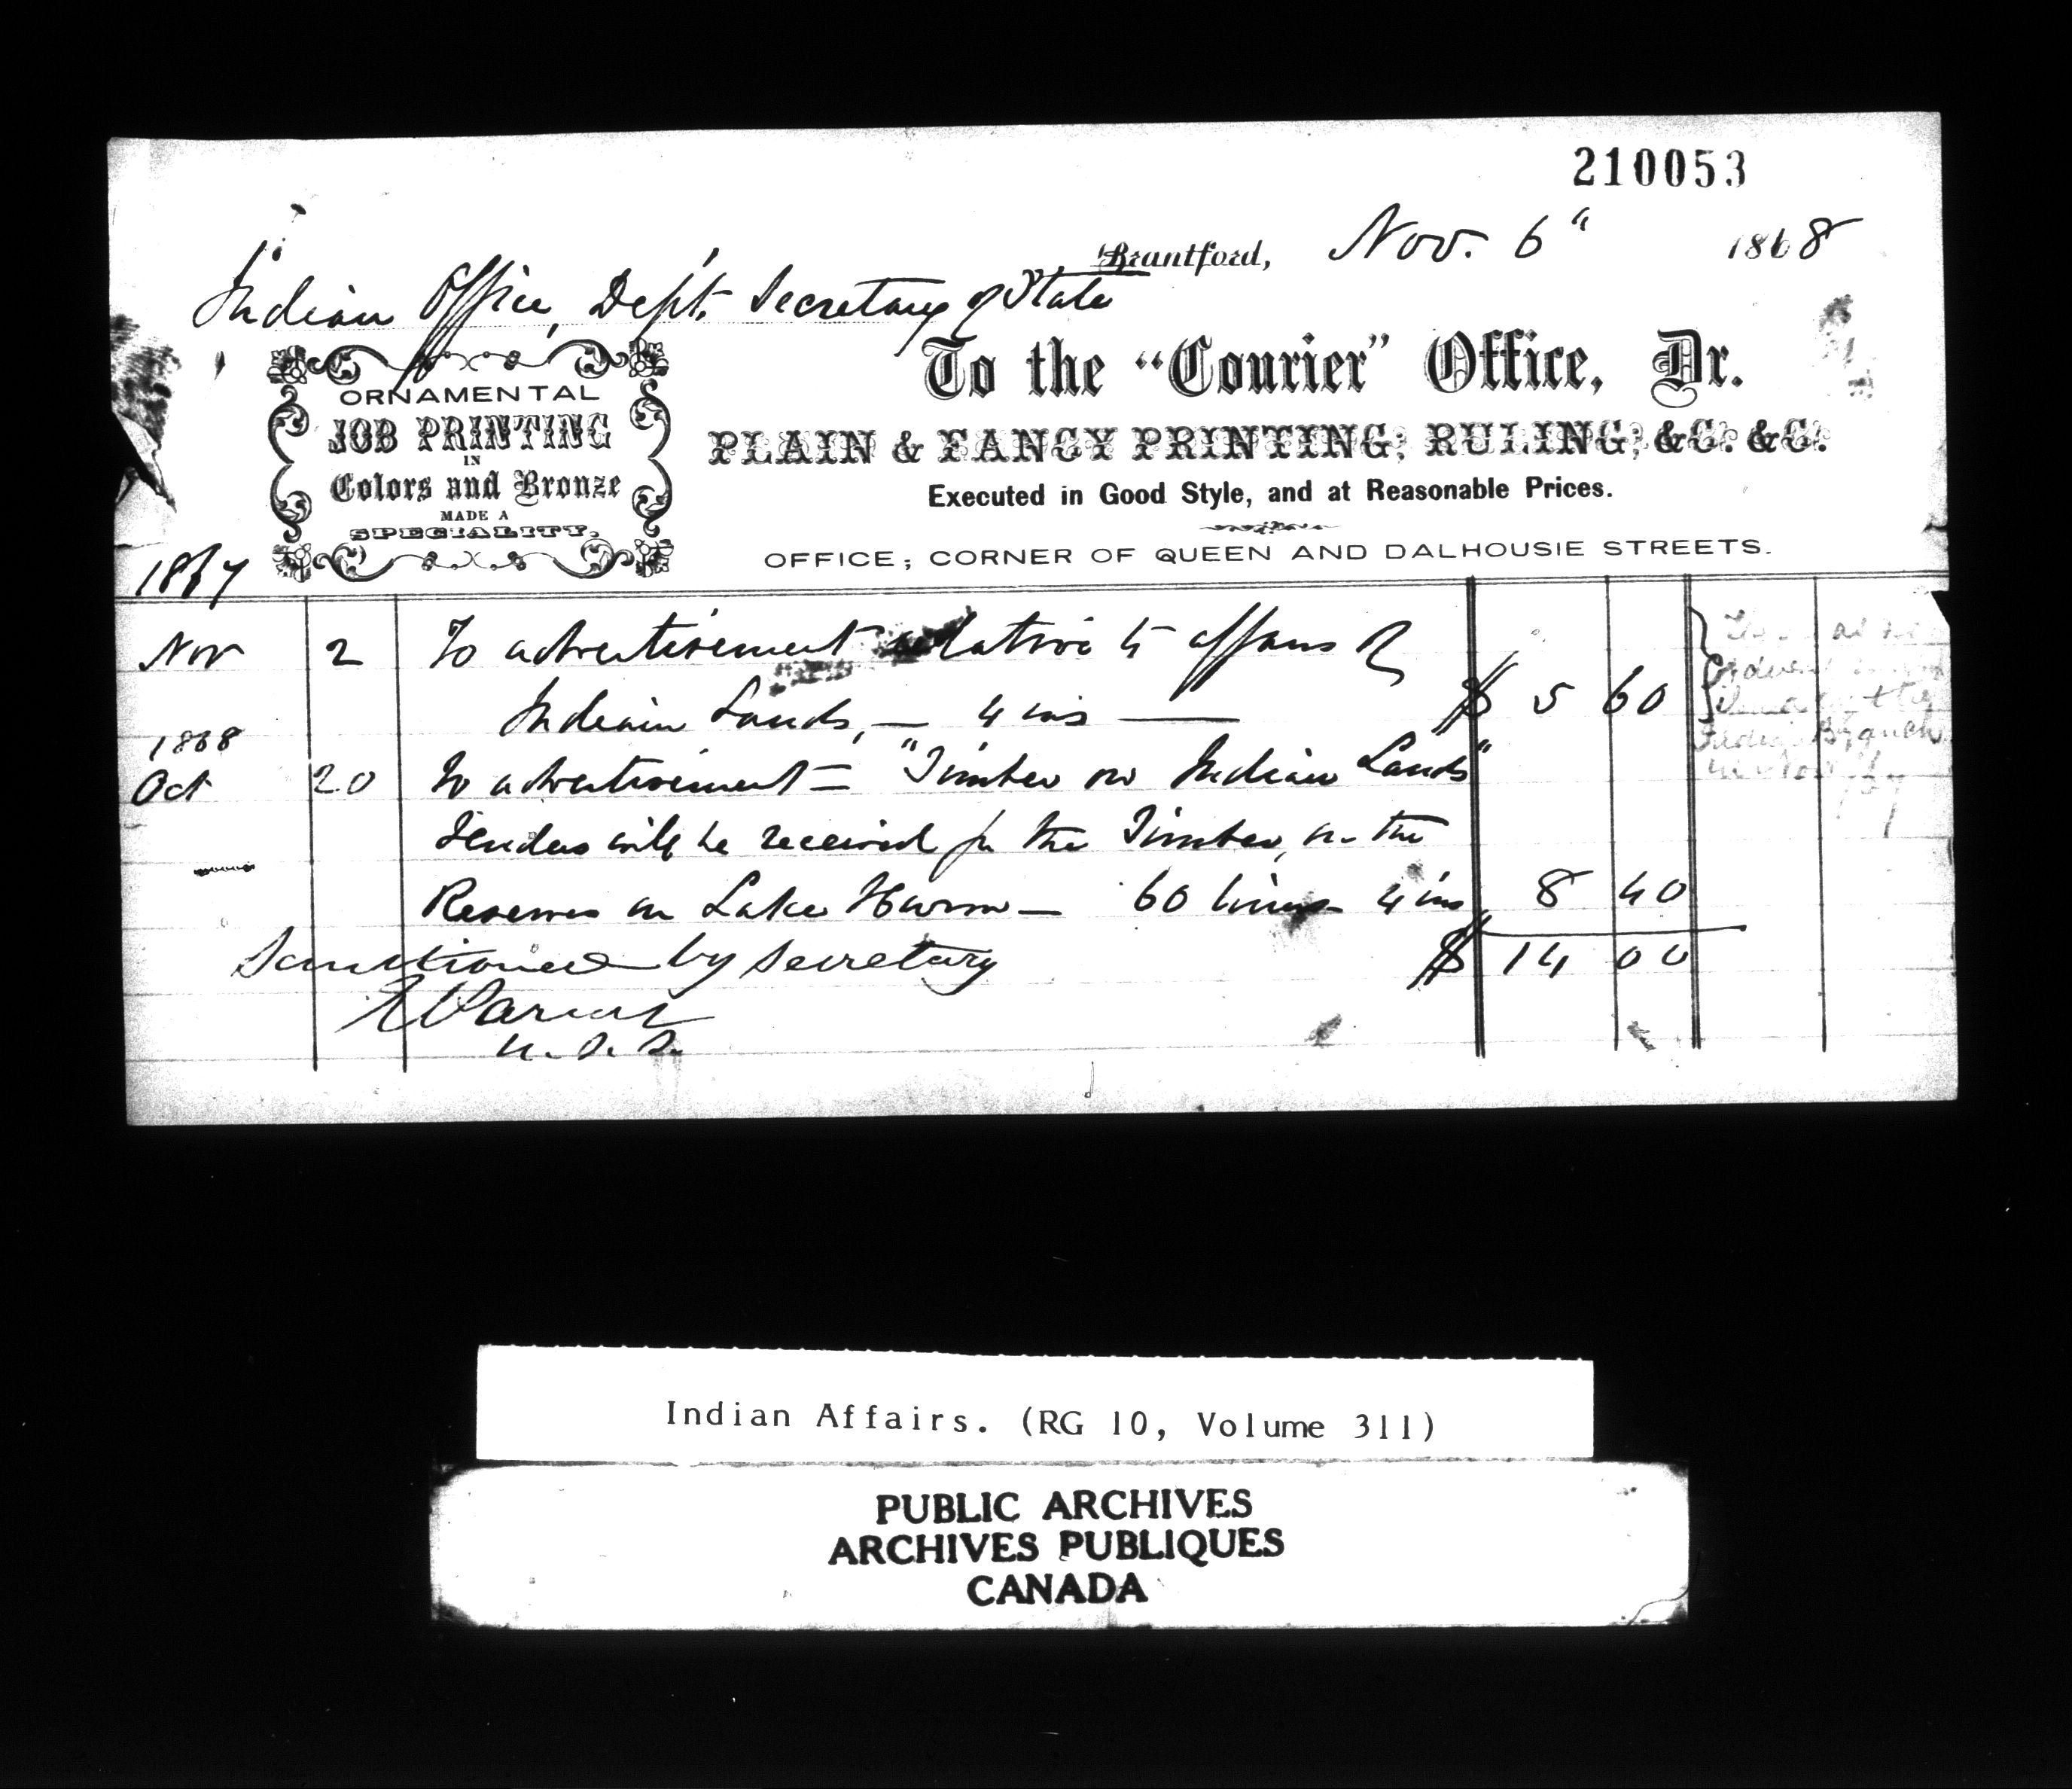 210053
Brantford, Nov. 6" 1868
Indian Office, Dept. Secretary of State
To the "Courier" Office, Dr.
ORNAMENTAL
JOB PRINTING
IN
Colors and Bronze
MADE A
SPECIALITY.
PLAIN & FANCY PRINTING; RULING; &C. &C.
Executed in Good Style, and at Reasonable Prices.
OFFICE; CORNER OF QUEEN AND DALHOUSIE STREETS.
1867
Nov 2 To advertisement relative to affairs of
Indian Lands, — 4 ins — $ 5 60
1868
Oct 20 To advertisement = "Timber on Indian Lands"
Tenders will be received for the Timber, on the
Reserves on Lake Huron — 60 lines 4 ins 8 40
$ 14 00
Sanctioned by Secretary
Indian Affairs. (RG 10, Volume 311)
PUBLIC ARCHIVES
ARCHIVES PUBLIQUES
CANADA